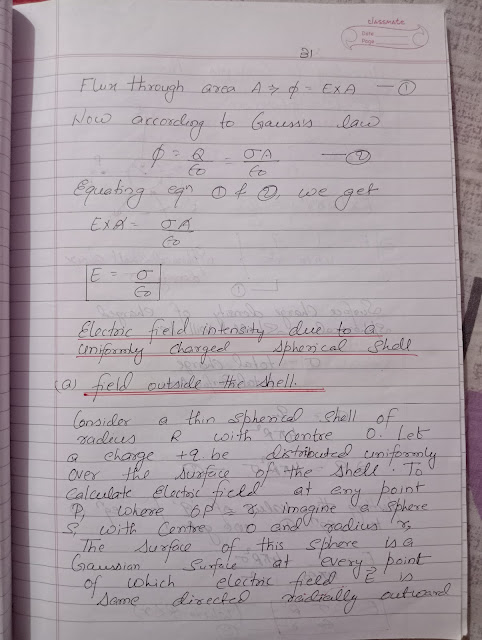 classmate
Date
Page
31
Flux through area A ⇒ ϕ = E×A — ①
Now according to Gauss's law
ϕ = Q/ε0 = σA/ε0 — ②
Equating eqn ① & ②, we get
E×A = σA/ε0
E = σ/ε0
Electric field intensity due to a
uniformly charged spherical shell
(a) field outside the shell.
Consider a thin spherical shell of
radius R with Centre O. Let
a charge +q be distributed uniformly
over the surface of the shell. To
Calculate Electric field at any point
P, where OP = r, imagine a sphere
S, with Centre O and radius r,
The surface of this sphere is a
Gaussian Surface at every point
of which electric field E⃗ is
Same directed radially outward